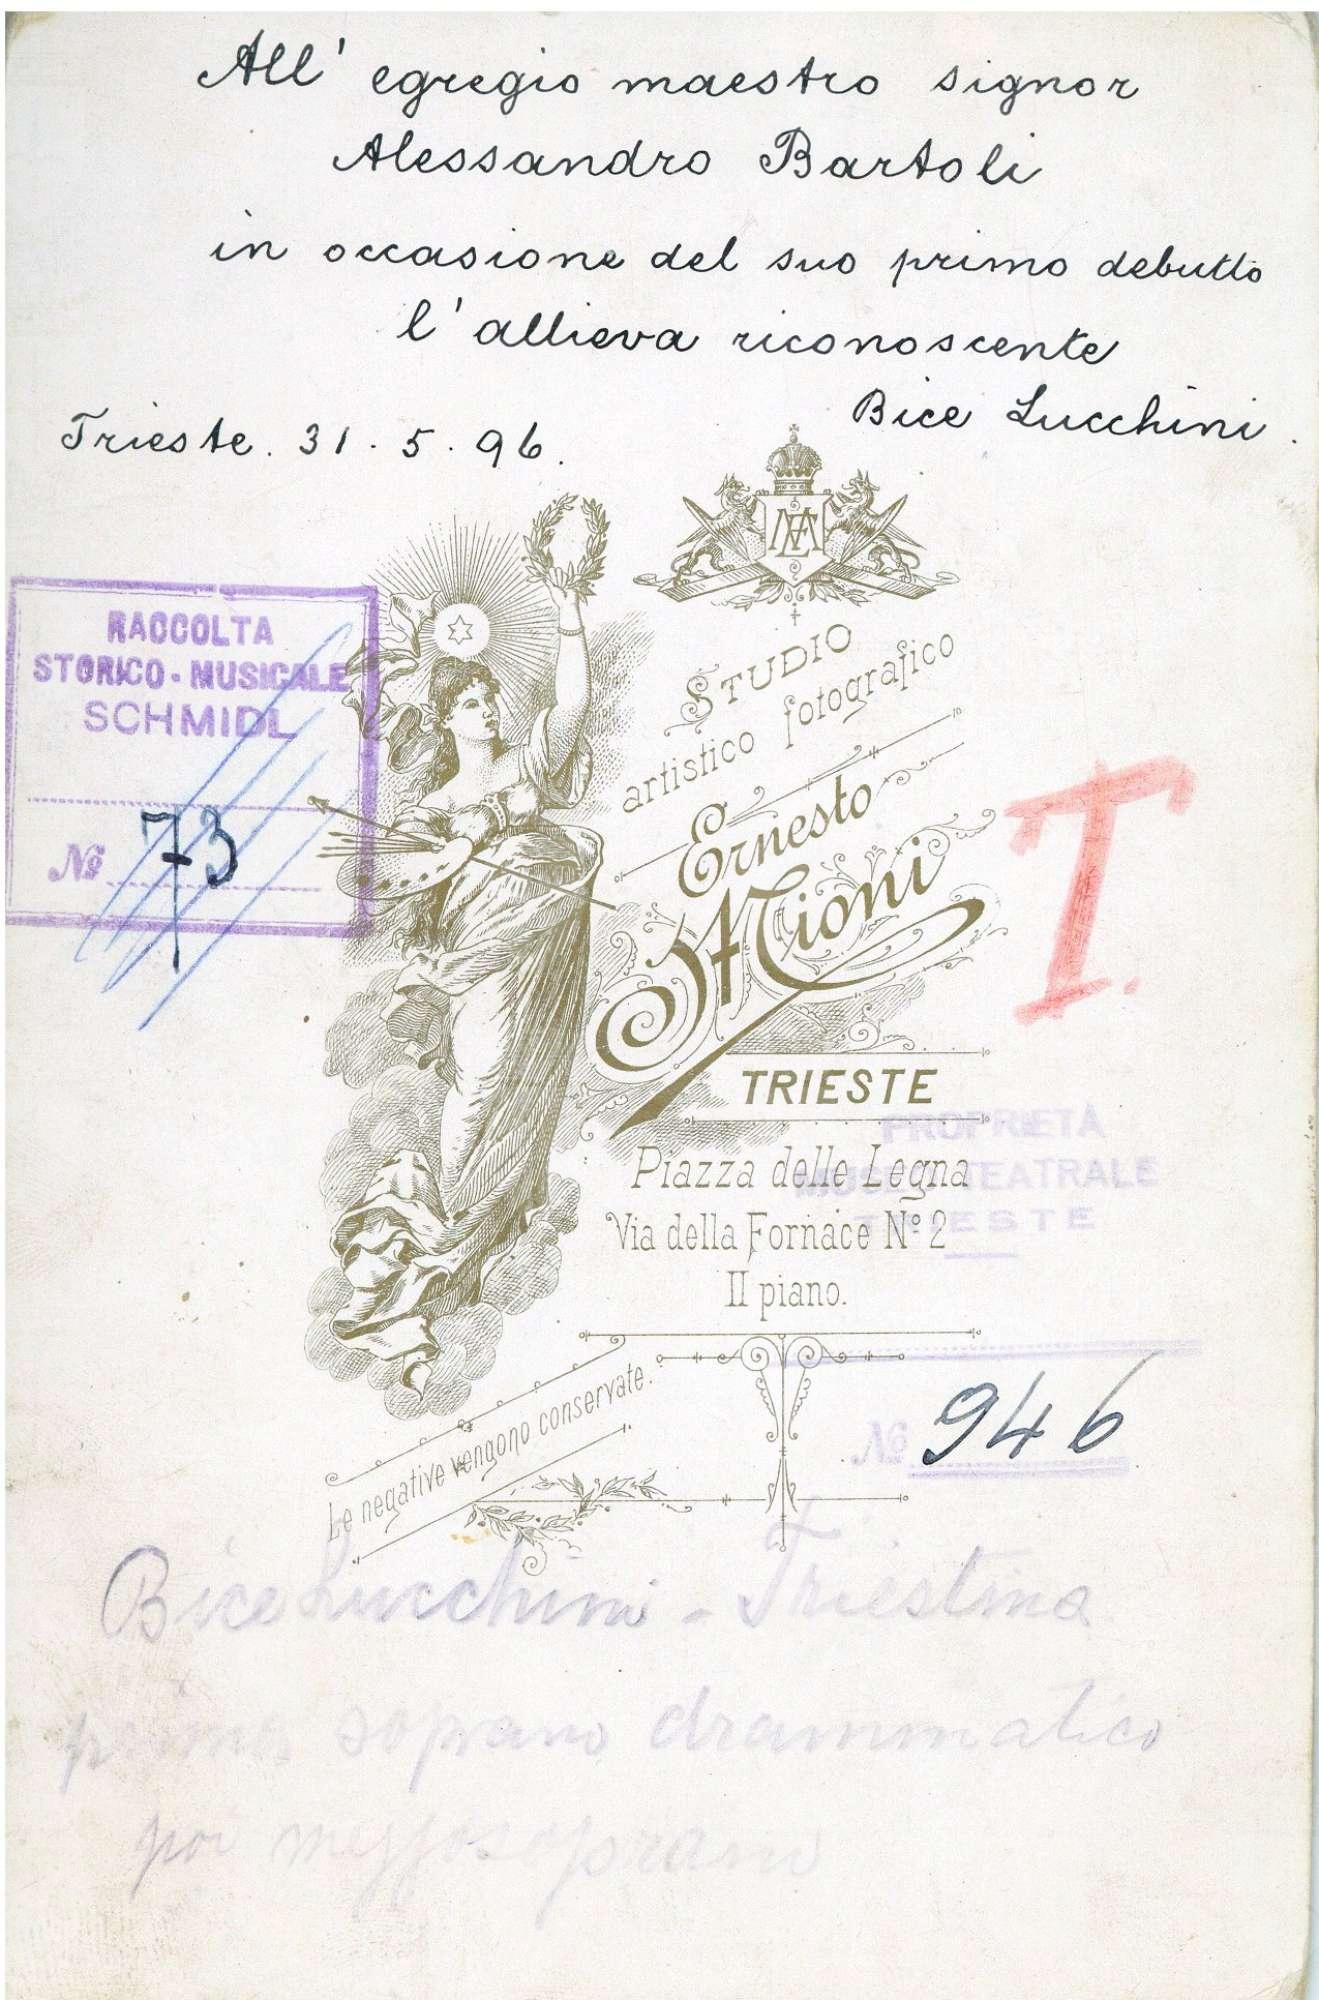 All' egregio maestro signor
Alessandro Bartoli
in occasione del suo primo debutto
l'allieva riconoscente
Bice Lucchini.
Trieste. 31. 5. 96.
RACCOLTA
STORICO-MUSICALE
SCHMIDL
No 73
STUDIO
artistico fotografico
Ernesto
Mioni
TRIESTE
Piazza delle Legna
Via della Fornace No 2
II piano.
Le negative vengono conservate.
T.
PROPRIETÀ
MUSEO TEATRALE
TRIESTE
No 946
Bice Lucchini - Triestina
prima soprano drammatico
poi mezzosoprano